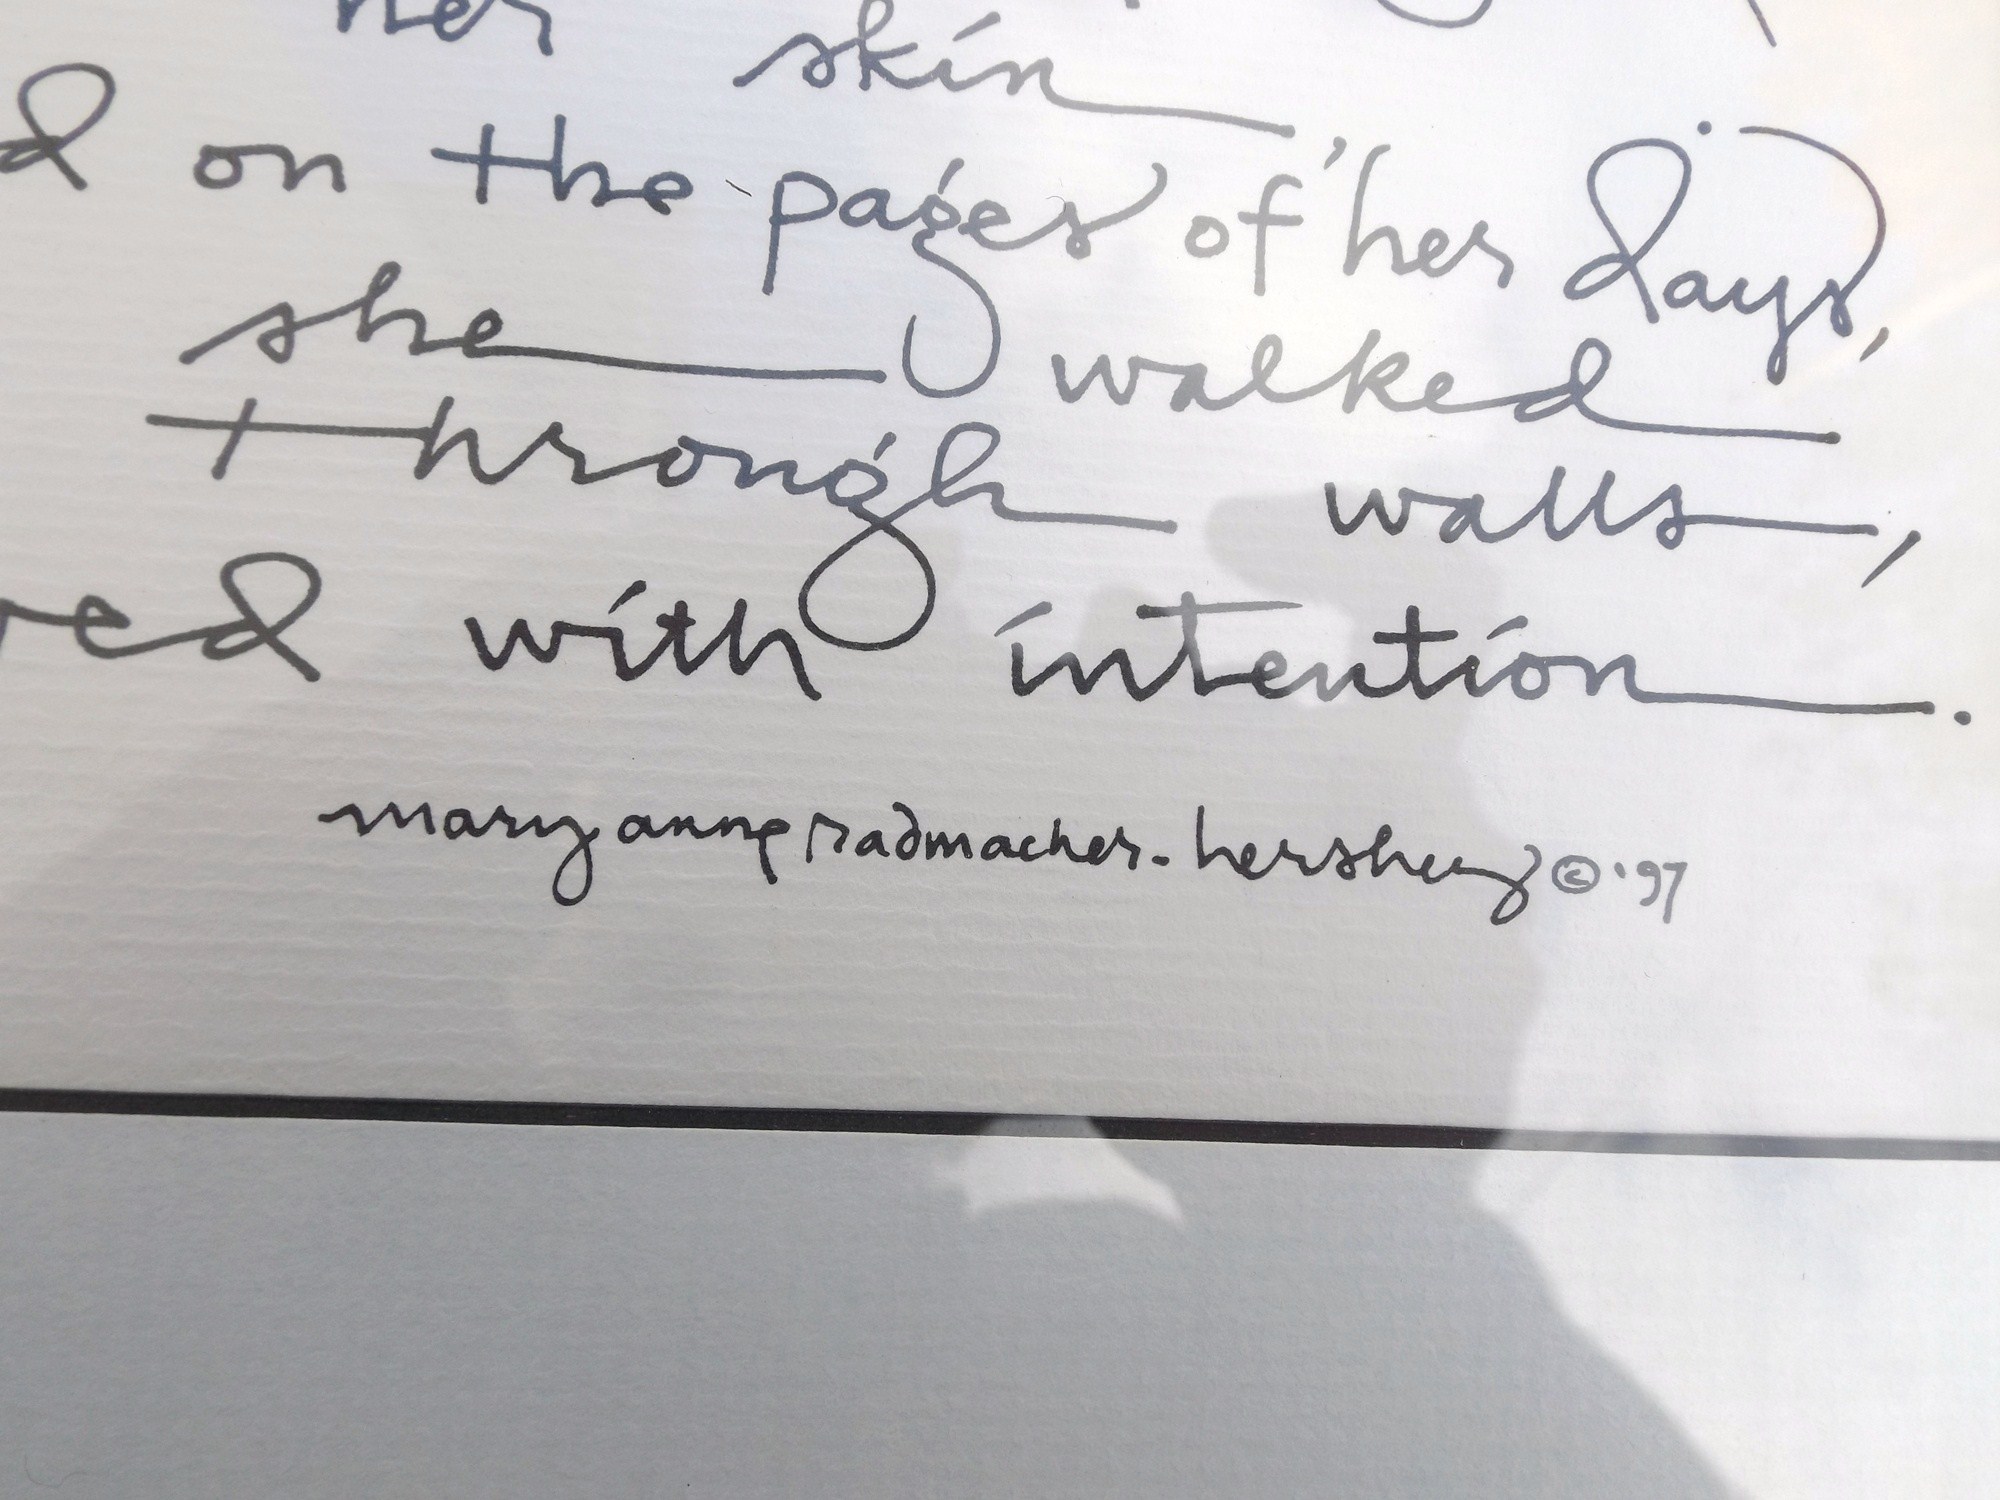 her skin
on the pages of her days,
she walked
through walls,
with intention.
mary anne radmacher-hershey © '97